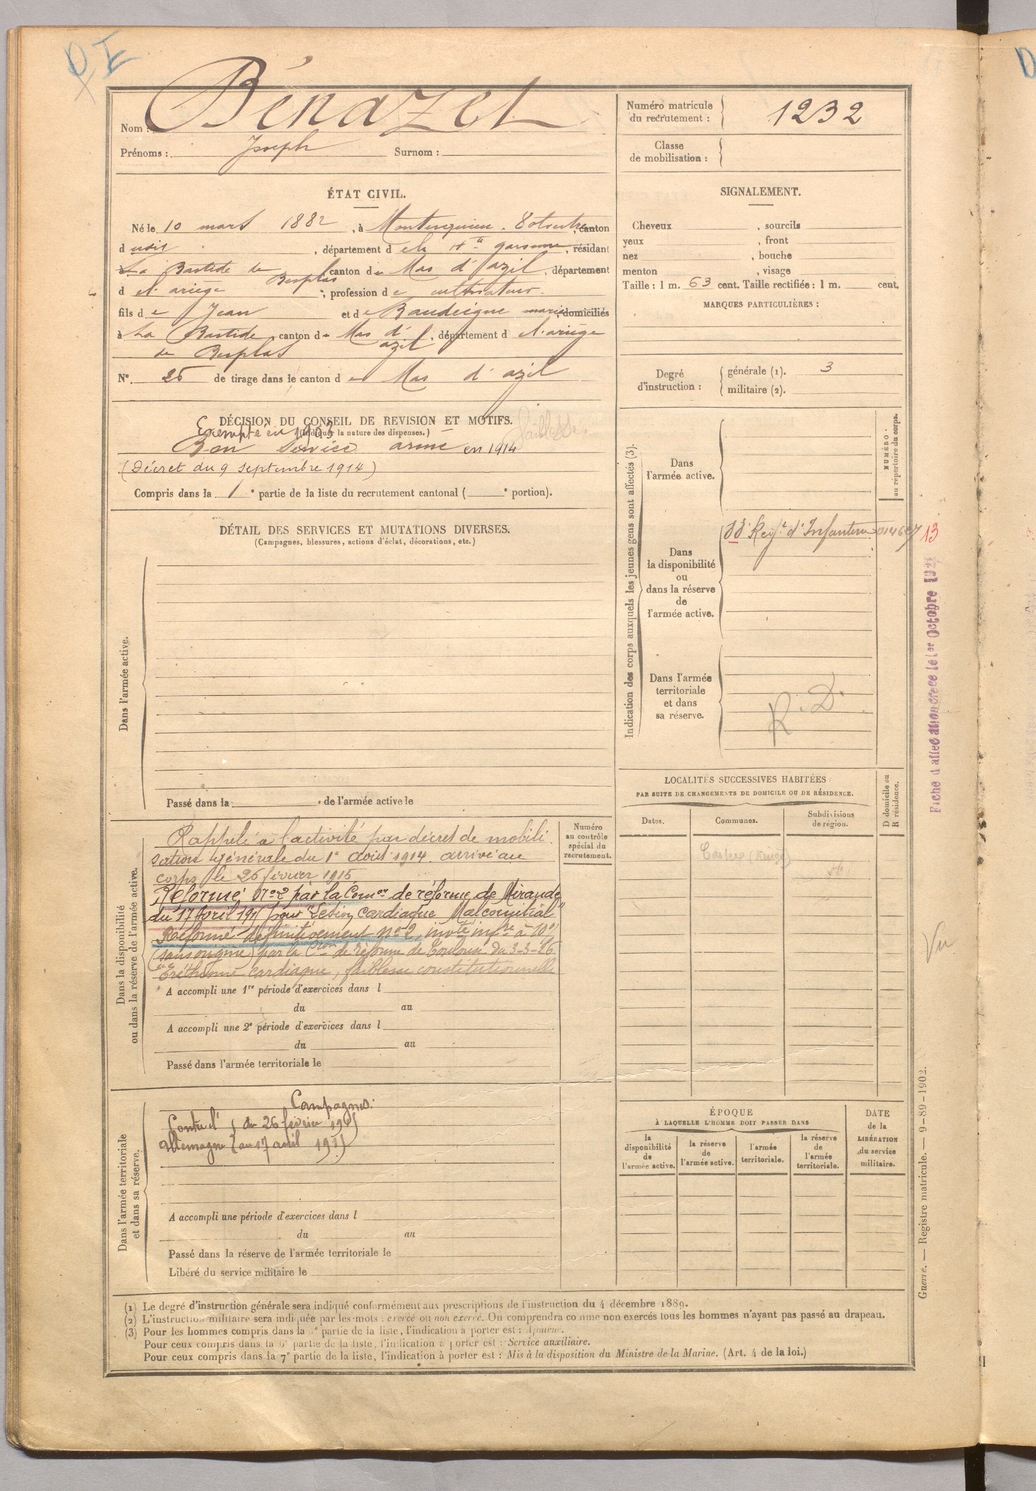 Nom : Bénazet
Prénoms : Joseph Surnom :
Numéro matricule du recrutement : 1232
Classe de mobilisation :
ÉTAT CIVIL.
Né le 10 mars 1882, à Montesquieu-Volvestre, canton
d udit, département d e la Hte garonne, résidant
La Bastide de Besplas, canton du Mas d'azil, département
d el ariège, profession de cultivateur.
fils de Jean et de Baudeigne marie, domiciliés
à La Bastide de Besplas, canton du Mas d'azil, département d el ariège
N° 25 de tirage dans le canton d u Mas d'azil
SIGNALEMENT.
Cheveux , sourcils
yeux , front
nez , bouche
menton , visage
Taille : 1 m. 63 cent. Taille rectifiée : 1 m. cent.
MARQUES PARTICULIÈRES :
Degré d'instruction : générale (1). 3
militaire (2).
DÉCISION DU CONSEIL DE REVISION ET MOTIFS.
(Indiquer la nature des dispenses.)
Exempté en 1903 faiblesse
Bon service armé en 1914
(Décret du 9 septembre 1914)
Compris dans la 1e partie de la liste du recrutement cantonal ( e portion).
DÉTAIL DES SERVICES ET MUTATIONS DIVERSES.
(Campagnes, blessures, actions d'éclat, décorations, etc.)
Dans l'armée active.
Passé dans la de l'armée active le
Indication des corps auxquels les jeunes gens sont affectés (3).
NUMÉRO au répertoire du corps.
Dans l'armée active.
Dans la disponibilité ou dans la réserve de l'armée active.
33e Regt d'Infanterie 13
Dans l'armée territoriale et dans sa réserve.
R. D.
Fiche d'allec
1er Octobre 1921
LOCALITÉS SUCCESSIVES HABITÉES
PAR SUITE DE CHANGEMENTS DE DOMICILE OU DE RÉSIDENCE.
Dates. Communes. Subdivisions de région. D domicile ou R résidence.
Vu
Dans la disponibilité ou dans la réserve de l'armée active.
Numéro au contrôle spécial du recrutement.
Rappelé à l'activité par décret de mobili
sation Générale du 1er Août 1914. arrivé au
corps le 26 février 1915
Réformé No 2 par la Comon de réforme de Mirande
du 17 avril 1915 pour "Lésion cardiaque Mal comitial"
Réformé définitivement No 2, invté infre à 10%
(sans origine) par la Con de réforme de Toulouse du 3-3-26
Eréthisme cardiaque, faiblesse constitutionnelle
A accompli une 1re période d'exercices dans l
du au
A accompli une 2e période d'exercices dans l
du au
Passé dans l'armée territoriale le
Dans l'armée territoriale et dans sa réserve.
Campagnes:
Contre l' du 26 février 1915
Allemagne au 17 avril 1915
A accompli une période d'exercices dans l
du au
Passé dans la réserve de l'armée territoriale le
Libéré du service militaire le
ÉPOQUE
À LAQUELLE L'HOMME DOIT PASSER DANS
la disponibilité de l'armée active.
la réserve de l'armée active.
l'armée territoriale.
la réserve de l'armée territoriale.
DATE de la LIBÉRATION du service militaire.
Guerre. — Registre matricule. — 9-89-1902.
(1) Le degré d'instruction générale sera indiqué conformément aux prescriptions de l'instruction du 4 décembre 1889.
(2) L'instruction militaire sera indiquée par les mots : exercé ou non exercé. On comprendra comme non exercés tous les hommes n'ayant pas passé au drapeau.
(3) Pour les hommes compris dans la partie de la liste, l'indication à porter est : Ajourné.
Pour ceux compris dans la 6e partie de la liste, l'indication à porter est : Service auxiliaire.
Pour ceux compris dans la 7e partie de la liste, l'indication à porter est : Mis à la disposition du Ministre de la Marine. (Art. 4 de la loi.)